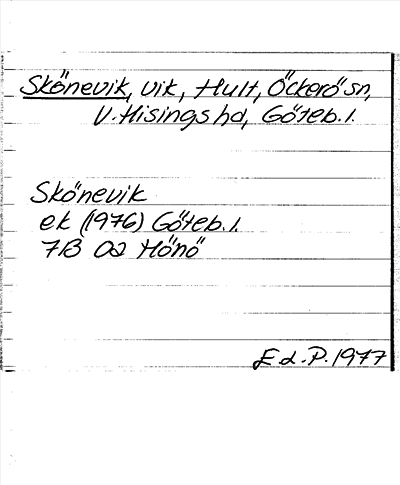 Skönevik, vik, Hult, Öckerö sn,
V. Hisings hd, Göteb. l.
Skönevik
ek (1976) Göteb. l.
7B 0a Hönö
E d. P. 1977